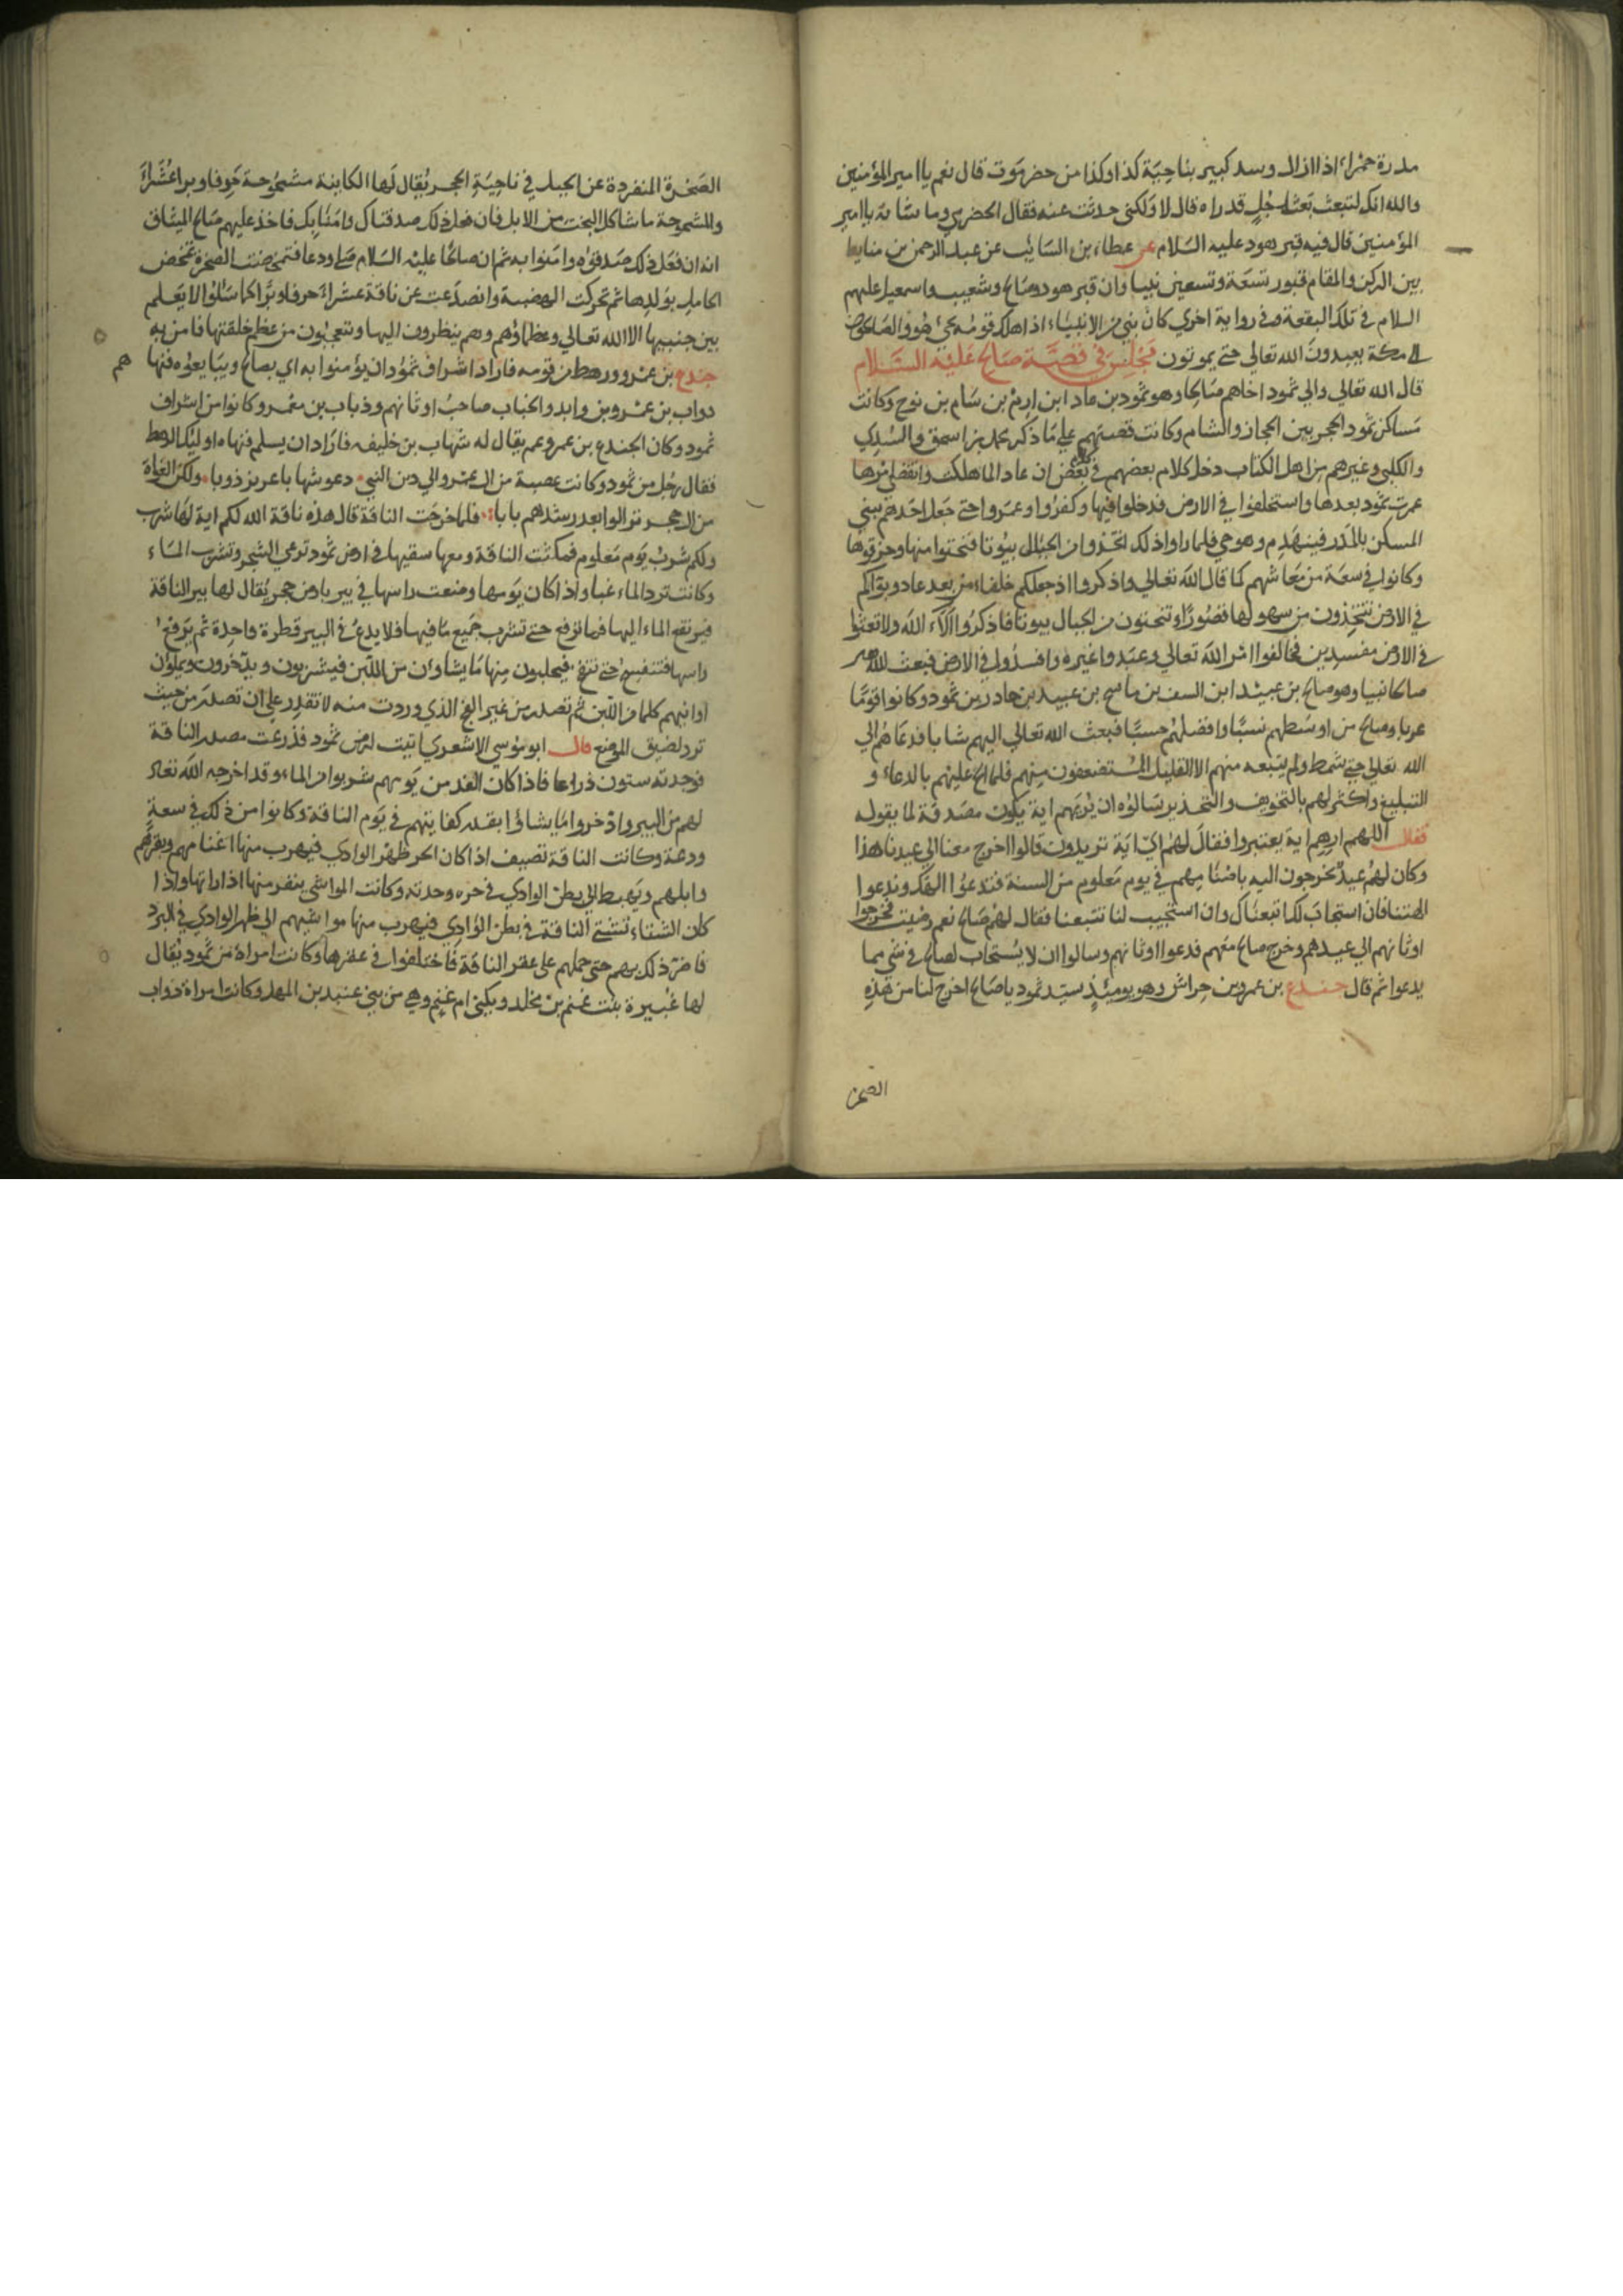 مدرة حمراء اذا اراك وسدر كبير بناحية كذا وكذا من حضرموت قال نعم يا امير المؤمنين
والله انك لتبعث بعث رجل قد راه قال لا ولكني حدثت عنه فقال الحضرمي وما شانه يا امير
المؤمنين قال فيه قبر هود عليه السلام عن عطاء بن السايب عن عبد الرحمن بن سابط
بين الركن والمقام قبور تسعة وتسعين نبيا وان قبر هود وصالح وشعيب واسمعيل عليهم
السلام في تلك البقعة وفي رواية اخري كان نبي من الانبياء اذا اهلك قومه يجئ هو والصالحون
الي مكة يعبدون الله تعالي حتي يموتون مجلس في قصة صالح عليه السلام
قال الله تعالي والي ثمود اخاهم صالحا وهو ثمود بن عاد ابن ارم بن سام بن نوح وكانت
مساكن ثمود الحجر بين الحجاز والشام وكانت قصتهم علي ما ذكر محمد بن اسحق والسدي
والكلبي وغيرهم من اهل الكتاب دخل كلام بعضهم في بعض ان عاد الما هلكت وانقضا امرها
عمرت ثمود بعدها واستخلفوا في الارض فدخلوا فيها وكفروا وعمروا حتي جعل احدهم يبني
المسكن بالمدر فينهدم وهو حي فلما راوا ذلك اتخذوا من الجبال بيوتا فنحتوا منها وخرقوها
وكانوا في سعة من معاشهم كما قال الله تعالي واذكروا اذ جعلكم خلفاء من بعد عاد وبوآكم
في الارض تتخذون من سهولها قصورًا وتنحتون من الجبال بيوتا فاذكروا الاء الله ولا تعثوا
في الارض مفسدين فخالفوا امر الله تعالي وعبدوا غيره وافسدوا في الارض فبعث الله
صالحا نبيا وهو صالح بن عبيد ابن السف بن ماسح بن عبيد بن حادر بن ثمود وكانوا قومًا
عربا وصالح من اوسطهم نسبًا وافضلهم حسبًا فبعث الله تعالي اليهم شابا فدعاهم الي
الله تعالي حتي شمط ولم يتبعه منهم الا القليل المستضعفون منهم فلما الح عليهم بالدعاء و
التبليغ واكثر لهم بالتخويف والتحذير سالوه ان يريهم اية يكون مصدقة لما يقوله
فقال اللهم ارهم اية يعتبروا فقال لهم ايّ اية تريدون قالوا اخرج معنا الي عيدنا هذا
وكان لهم عيد يخرجون اليه باصنامهم في يوم معلوم من السنة فتدعوا الهك وندعوا
الهتنا فان استجاب لك اتبعناك وان استجيب لنا تتبعنا فقال لهم صالح نعم رضيت فخرجوا
اوثانهم الي عيدهم وخرج صالح معهم فدعوا اوثانهم وسالوا ان لا يستجاب لصالح في شي مما
يدعوا ثم قال جندع بن عمرو بن حراش وهو يومئذ سيد ثمود يا صالح اخرج لنا من هذه
الصخر
الصخرة المنفردة عن الجبل في ناحية الحجر يقال لها الكابنة مشجوحة جوفا وبرا عشراء
والمشجوجة ما شاكل البخت من الابل فان فعل ذلك صدقناك وامنا بك فاخذ عليهم صالح الميثاق
انه ان فعل ذلك صدقوه وامنوا به ثم ان صالحا عليه السلام صلي ودعا فتمخضت الصخرة تمخض
الحامل بولدها ثم تحركت الهضبة وانصدعت عن ناقة عشراء جوفا وبرا كما سئلوا لا يعلم
بين جنبيها الا الله تعالي وعظماؤهم وهم ينظرون اليها وتتعجبون من عظم خلقتها فامن به
جندع بن عمرو ورهط من قومه فاراد اشراف ثمود ان يؤمنوا به اي بصالح ويبايعوه فنهاهم
دواب بن عمرو بن وابد والخباب صاحب اوثانهم وذباب بن معمر وكانوا من اشراف
ثمود وكان الجندع بن عمر وعم يقال له شهاب بن خليفه فاراد ان يسلم فنهاه اوليك الرهط
فقال رجل من ثمود وكانت عصبة من ال عمرو الي دين النبي دعو شهابا عزيز ذوبا ولكن الغواة
من ال حجر تولوا بعد رشدهم بابا فلما خرجت الناقة قال هذه ناقة الله لكم اية لها شرب
ولكم شرب يوم معلوم فمكثت الناقة ومعها سقيها في ارض ثمود ترعي الشجر وتشرب الماء
وكانت ترد الماء غبا واذا كان يومها وضعت راسها في بير بارض حجر يقال لها بير الناقة
فيرتفع الماء اليها فما ترفع حتي تشرب جميع ما فيها فلا يدع في البير قطرة واحدة ثم يرفع
راسها فتنفسح حتي تنفح فيحلبون منها ما يشاؤن من اللبن فيشربون ويدخرون ويملؤن
اوانيهم كلها من اللبن ثم تصدر من غير الفج الذي وردت منه لا تقدر علي ان تصدر من حيث
ترد لضيق الموضع قال ابو موسي الاشعري اتيت ارض ثمود فذرعت مصدر الناقة
فوجدته ستون ذراعا فاذا كان الغد من يومهم شربوا من الماء وقد اخرجه الله تعالي
لهم من البير وادخروا ما يشاؤا بقدر كفايتهم في يوم الناقة وكانوا من ذلك في سعة
ودعة وكانت الناقة تصيف اذا كان الحر ظهر الوادي فيهرب منها اغنامهم وبقرهم
وابلهم ويهبط الي بطن الوادي في حره وجدته وكانت المواشي ينفر منها اذا راتها واذا
كان الشتاء تشتي الناقة في بطن الوادي فيهرب منها مواشيهم الي ظهر الوادي في البرد
فاضر ذلك بهم حتى حملهم على عقر الناقة فاختلفوا في عقرها وكانت امراة من ثمود يقال
لها عنيزة بنت غنم بن مخلد ويكني ام غنم وهي من بني عنبد بن المهد وكانت امراة دواب